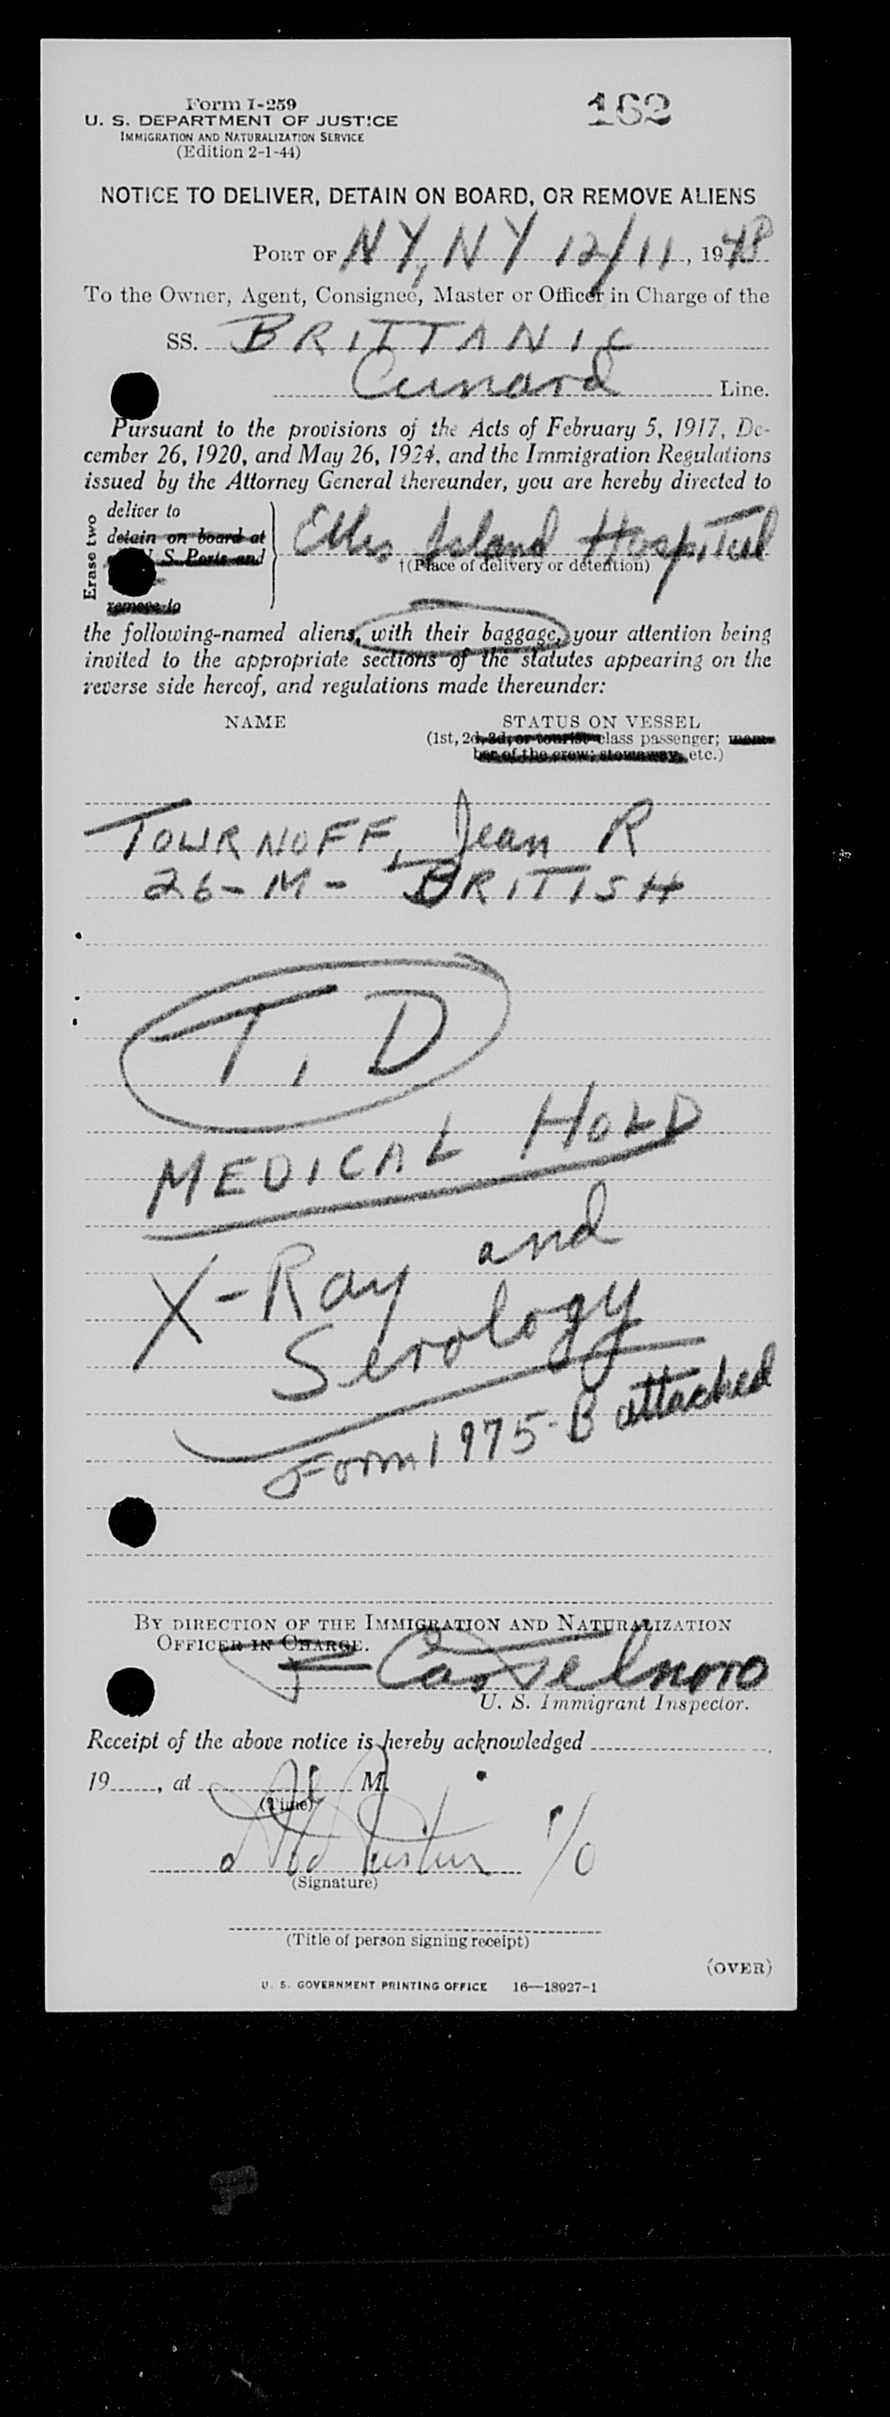 Form I-259
162
U. S. DEPARTMENT OF JUSTICE
IMMIGRATION AND NATURALIZATION SERVICE
(Edition 2-1-44)
NOTICE TO DELIVER, DETAIN ON BOARD, OR REMOVE ALIENS
PORT OF NY, NY 12/11, 1948
To the Owner, Agent, Consignee, Master or Officer in Charge of the
SS. BRITTANIC
Cunard Line.
Pursuant to the provisions of the Acts of February 5, 1917, De-
cember 26, 1920, and May 26, 1924, and the Immigration Regulations
issued by the Attorney General thereunder, you are hereby directed to
Erase two
deliver to
detain on board at
U. S. Ports and
remove to
Ellis Island Hospital
†(Place of delivery or detention)
the following-named aliens, with their baggage, your attention being
invited to the appropriate sections of the statutes appearing on the
reverse side hereof, and regulations made thereunder:
NAME STATUS ON VESSEL
(1st, 2d, 3d, or tourist class passenger; mem-
ber of the crew; stowaway, etc.)
TOURNOFF, Jean R
26-M- BRITISH
T, D
MEDICAL HOLD
X-Ray and
Serology
Form 1975-B attached
BY DIRECTION OF THE IMMIGRATION AND NATURALIZATION
OFFICER IN CHARGE.
U. S. Immigrant Inspector.
Receipt of the above notice is hereby acknowledged
19, at M.
(Time)
(Signature)
(Title of person signing receipt)
(OVER)
U. S. GOVERNMENT PRINTING OFFICE 16—18927-1